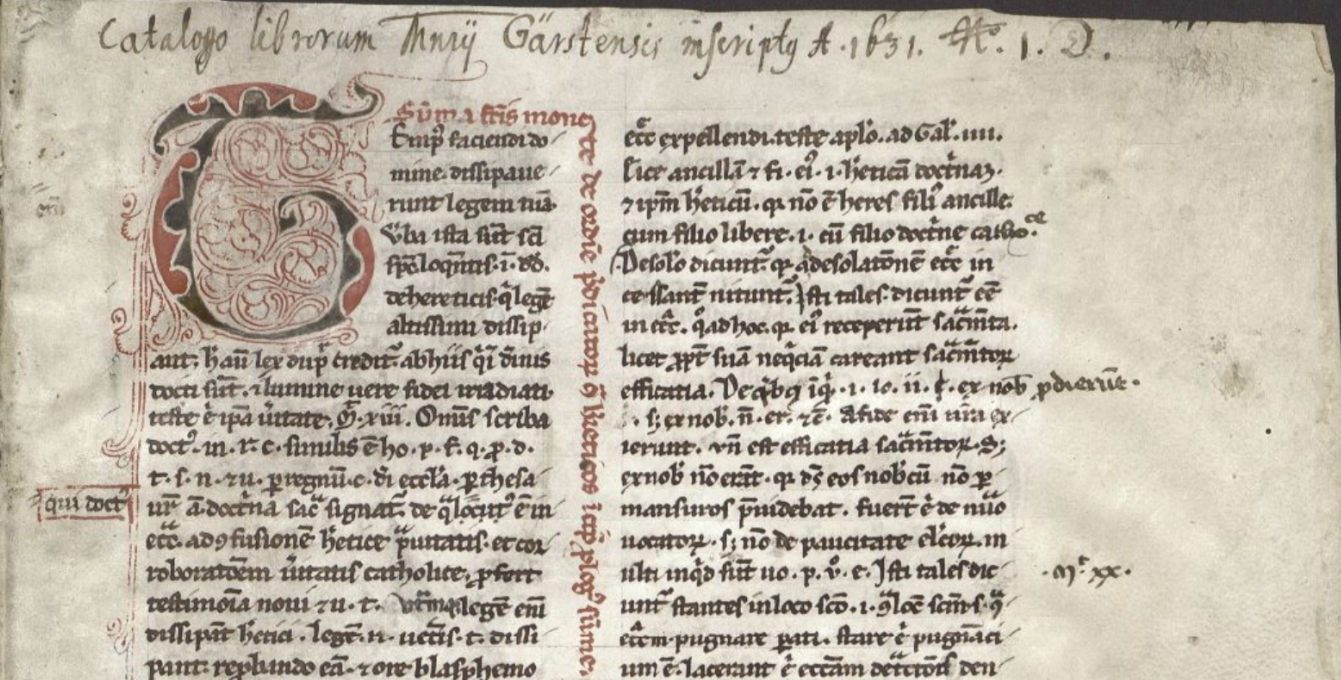 Catalogo librorum Mnrij Gärstensis inscriptq A. 1631. N. I. D.
Sūm̄a fr̄is mone
te de ordīe p̄dicatoꝝ ꝯ̄ h̄eticos īcip̄ ꝓlogꝰ sūme.
Tempꝰ faciendi do
mine dissipaue
runt legem tuā
Vба ista sūt sā
sp̄c̄ loquētis. i. dd̄.
de hereticis. q̄ legē
altissimi dissip
ant. h̄ lex
docti sūt. ⁊ lumine uere fidei irradiati
teste ē ip̄a ūitate. M̄. xiii. Omīs scriba
doctꝰ. in. r. c. similis ē ho. p. f. q. ꝓ. d.
t. s. n. ⁊ u. ꝑ regnū. c. d̄i eccl̄a. ꝑ thesa
qui doctꝰ
ur̄ a doctrina sac̄ signat̄. de q̄ locutꝰ ē in
ecc̄. ad ꝯfusionē h̄etice prauitatis. et cor
roboratōem ūitatis catholice. ꝓfert
testimoīa noui ⁊ u. t. legē eni
dissipāt h̄etici. legē. n. ueteris. t. dissi
pant. reꝓbando eā. ⁊ ore blasphemo
ecc̄ expellendi. teste apl̄o. ad Gal̄. iiii.
Eice ancillā ⁊ fi. eiꝰ. i. h̄eticā doctrīaꝫ.
⁊ ip̄m h̄eticū. qꝛ nō ē heres filiꝰ ancille.
cum filio libere. i. cū filio doctrīe catho.ce
Desolō dicunt̄. qꝛ ad desolatōnē ecc̄ in
cessant̄ nitunt̄. Isti tales dicunt̄ eē
in ecc̄. q̄ ad hoc. qꝛ eiꝰ receperūt sac̄mta.
licet ꝓpt̄ suā neq̄ciā careant sac̄mtoꝝ
efficatia. De q̄bꝫ īq̄. i. io. ii. c̄. ex nob̄ ꝓdierūt.
s; ex nob̄. n̄. er. ⁊c̄. A fide eni nr̄a ex
ierunt. vn̄ est efficatia sac̄mtoꝝ. S;
ex nob̄ nō erāt. qꝛ d̄s eos nob̄cū nō ꝑ
mansuros p̄uidebat. fuert̄ ē de nūo
uocatoꝝ. s; nō de paucitate el̄coꝝ. m
ulti inq̄d sūt uo. p. v̄. e. Isti tales dic
.M̄. xx.
unt̄ stantes in loco scō. i. ꝯ̄
pugnare ꝑati. stare ē pugnaci
um ē. lacerant ē eccām detc̄cōnis den